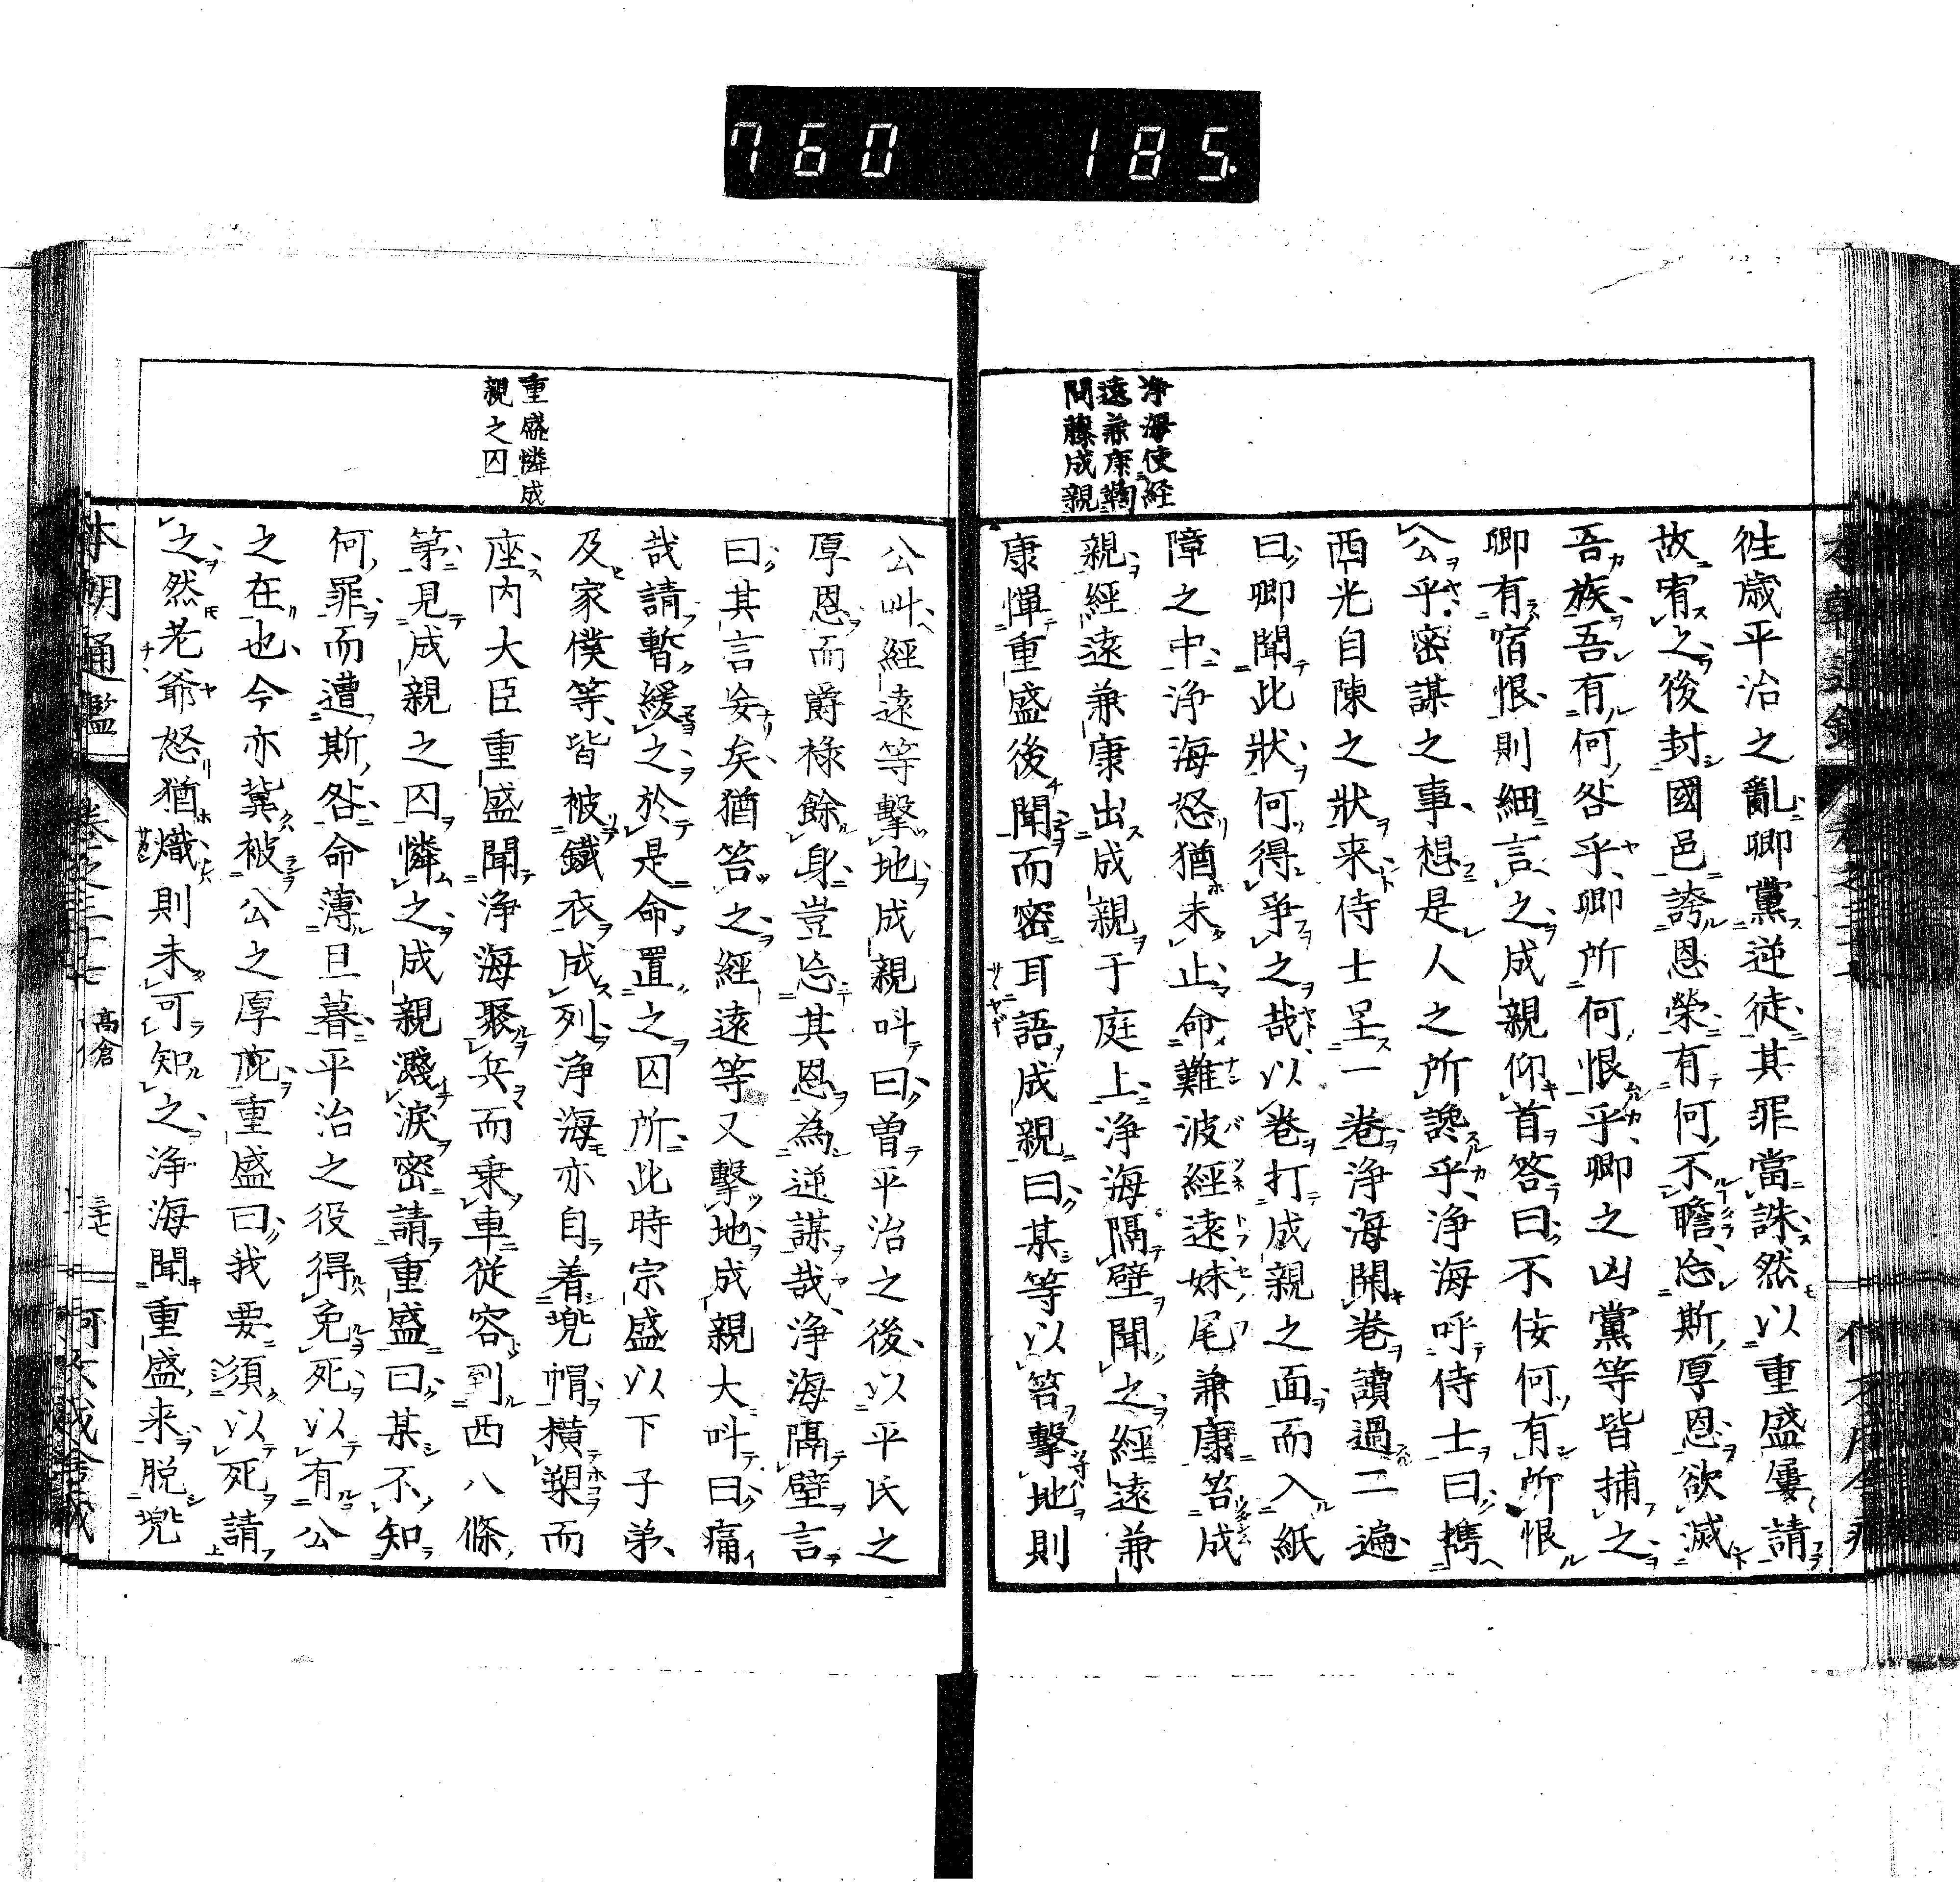 760 185.
浄海使経
遠兼康鞫
問藤成親
徃歳平治之亂卿黨逆徒其罪當誅然以重盛屢請
故宥之後封國邑誇恩榮有何不瞻忘斯厚恩欲滅
吾族吾有何咎乎卿所何恨乎卿之凶黨等皆捕之
卿有宿恨則細言之成親仰首答曰不侫何有所恨
公乎密謀之事想是人之所讒乎浄海呼侍士曰携
西光自陳之狀来侍士呈一卷浄海開卷讀過二遍
曰卿聞此狀何得爭之哉以卷打成親之面而入紙
障之中浄海怒猶未止命難波經遠妹尾兼康笞成
親經遠兼康出成親于庭上浄海隔壁聞之經遠兼
康憚重盛後聞而密耳語成親曰某等以笞擊地則
重盛憐成
親之囚
公叫經遠等擊地成親叫曰曽平治之後以平氏之
厚恩而爵祿餘身豈忘其恩為逆謀哉浄海隔壁言
曰其言妄矣猶笞之經遠等又擊地成親大叫曰痛
哉請暫緩之於是命置之囚所此時宗盛以下子弟
及家僕等皆被鐵衣成列浄海亦自着兜帽横槊而
座内大臣重盛聞浄海聚兵而乗車従容到西八條
第見成親之囚憐之成親濺涙密請重盛曰某不知
何罪而遭斯咎命薄旦暮平治之役得免死以有公
之在也今亦冀被公之厚庇重盛曰我要須以死請
之然老爺怒猶熾則未可知之浄海聞重盛来脱兜
本朝通鑑 卷之三十七 高倉 三十七